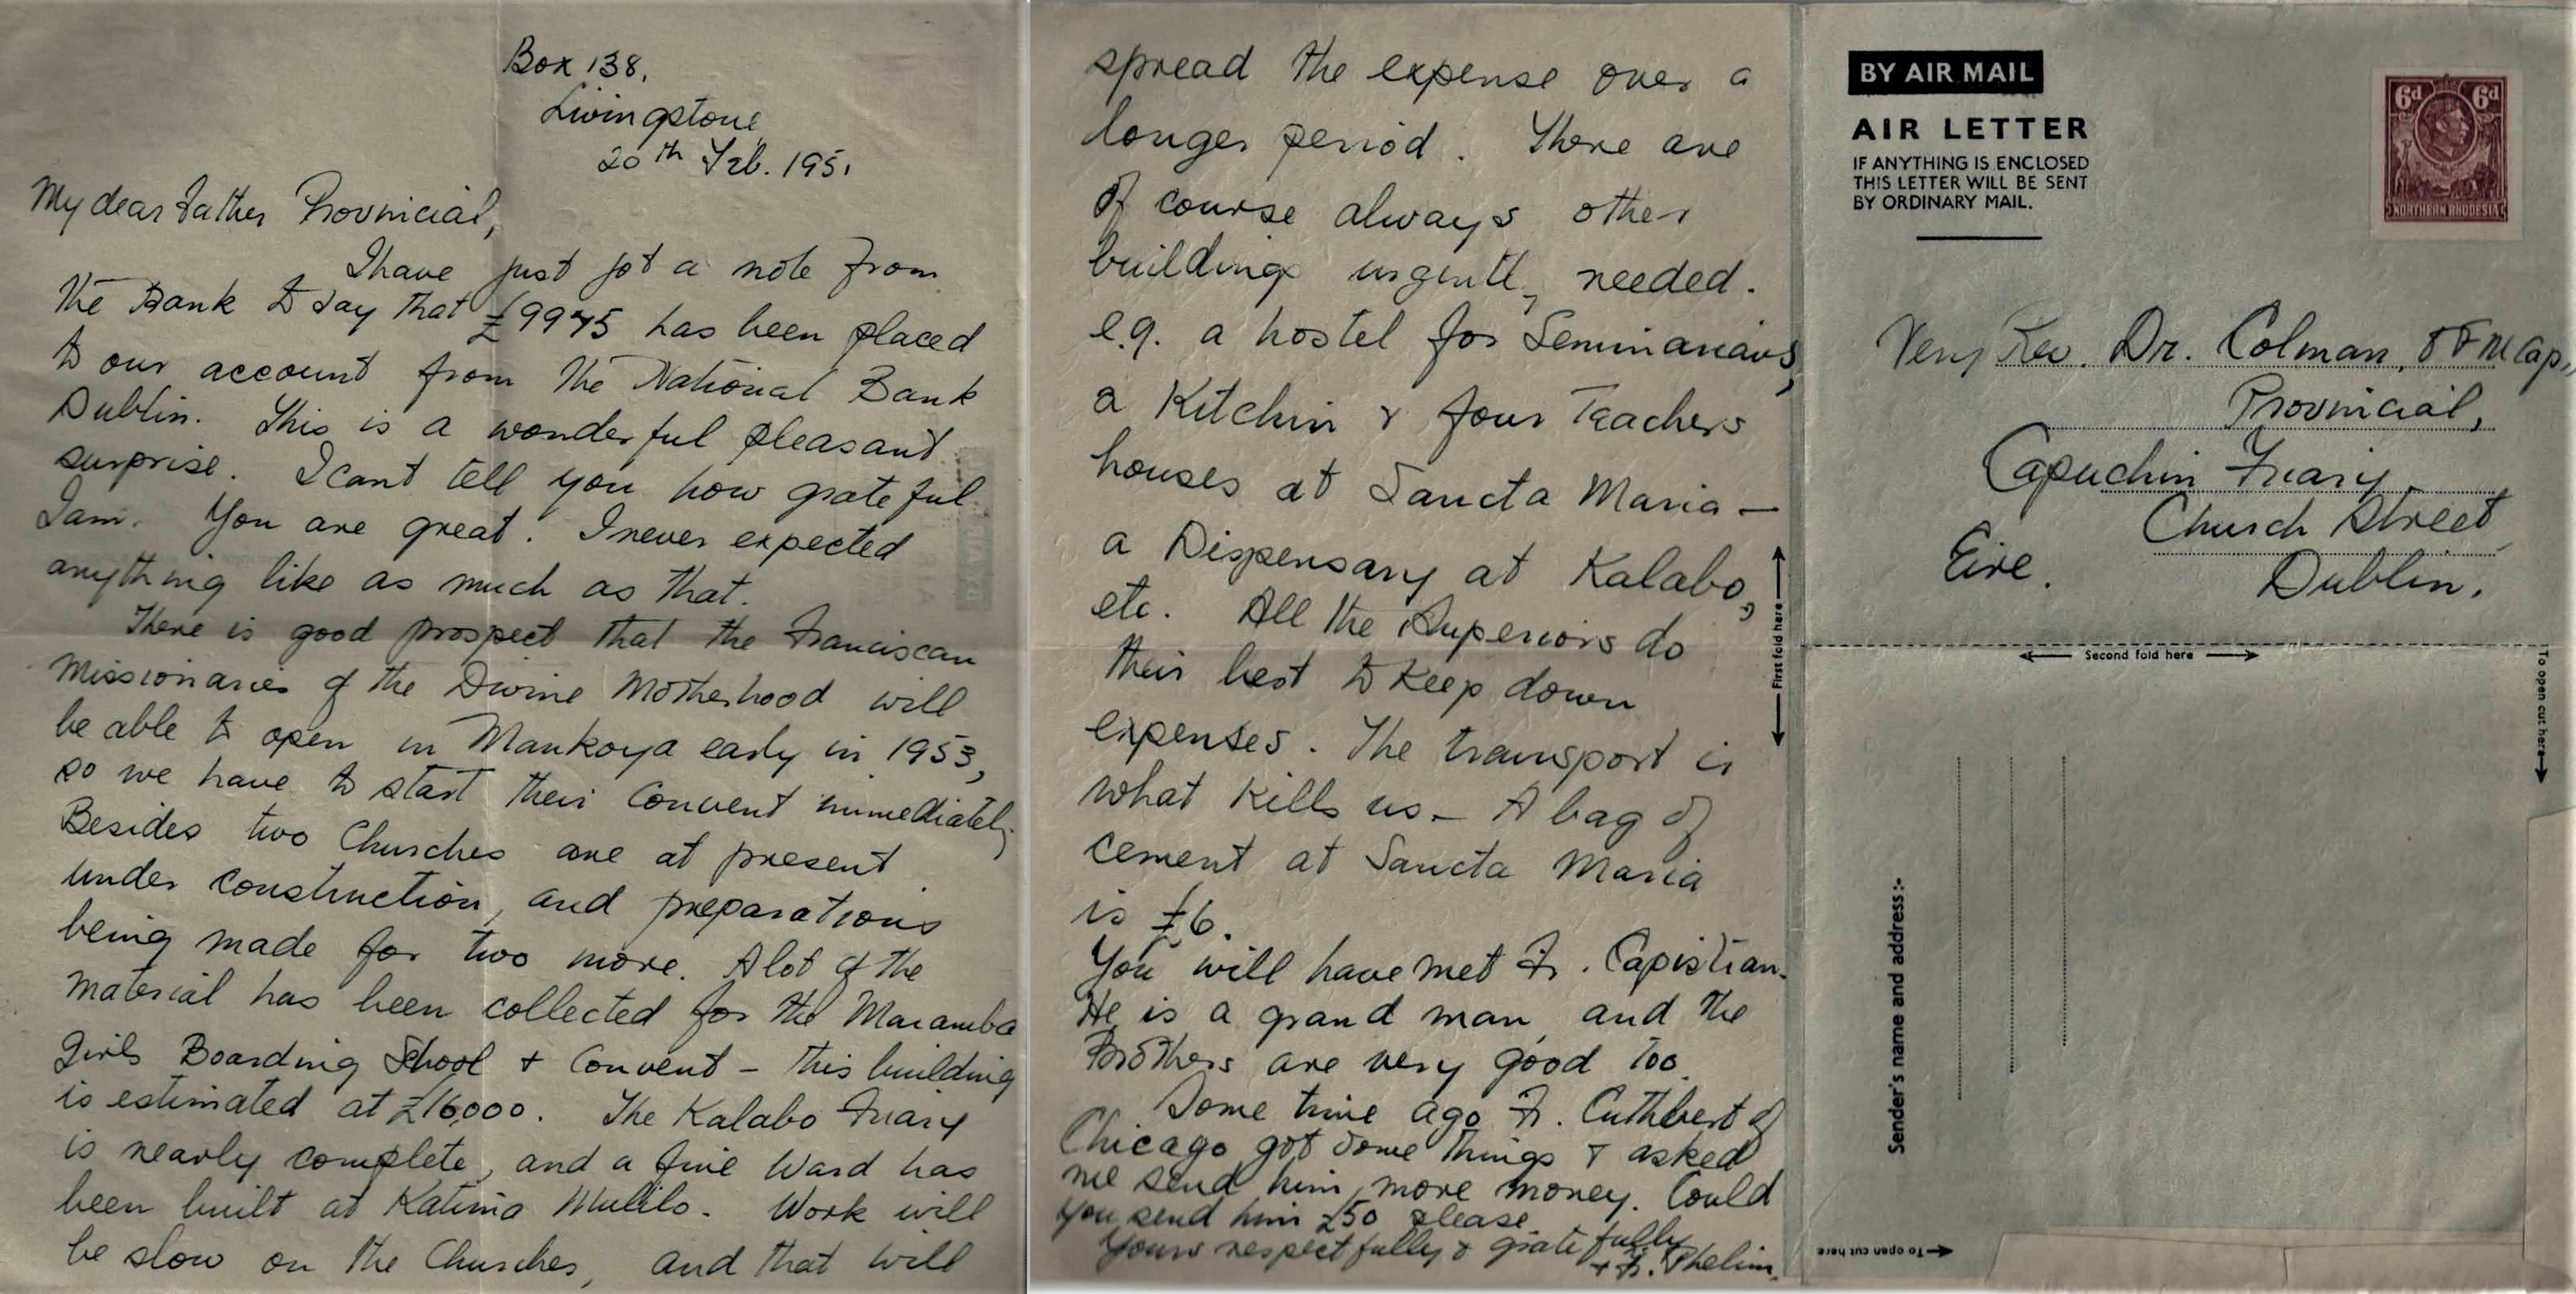 Box 138,
Livingstone
20th Feb. 195.
My dear Father Provincial,
I have just got a note from
the Bank to say that £9975 has been placed
to our account from the National Bank
Dublin. This is a wonderful pleasant
surprise. I cant tell you how grateful
I am. You are great. I never expected
anything like as much as that.
There is good prospect that the Franciscan
Missionaries of the Divine Motherhood will
be able to open in Mankoya early in 1953,
so we have to start their Convent immediately
Besides two Churches are at present
under construction, and preparations
being made for two more. A lot of the
material has been collected for the Maramba
Girls Boarding School + Convent - this building
is estimated at £16,000. The Kalabo Friary
is nearly complete, and a fine Ward has
been built at Katima Mulilo. Work will
be slow on the Churches, and that will
spread the expense over a
longer period. There are
of course always other
buildings urgently needed.
e.g. a hostel for Seminarians,
a Kitchin & four Teachers
houses at Sancta Maria —
a Dispensary at Kalabo,
etc. All the Superiors do
their best to keep down
expenses. The transport is
what kills us — A bag of
cement at Sancta Maria
is £6.
You will have met Fr. Capistran.
He is a grand man and the
Brothers are very good too.
Some time ago Fr. Cuthbert of
Chicago got some things & asked
me send him more money. Could
you send him £50 please.
Yours respectfully & gratefully
+ Fr. Phelim.
BY AIR MAIL
AIR LETTER
IF ANYTHING IS ENCLOSED
THIS LETTER WILL BE SENT
BY ORDINARY MAIL.
6d 6d
NORTHERN RHODESIA
Very Rev. Dr. Colman, OFM Cap.,
Provincial,
Capuchin Friary
Church Street
Dublin.
Eire.
First fold here
Second fold here
To open cut here
Sender's name and address:-
To open cut here